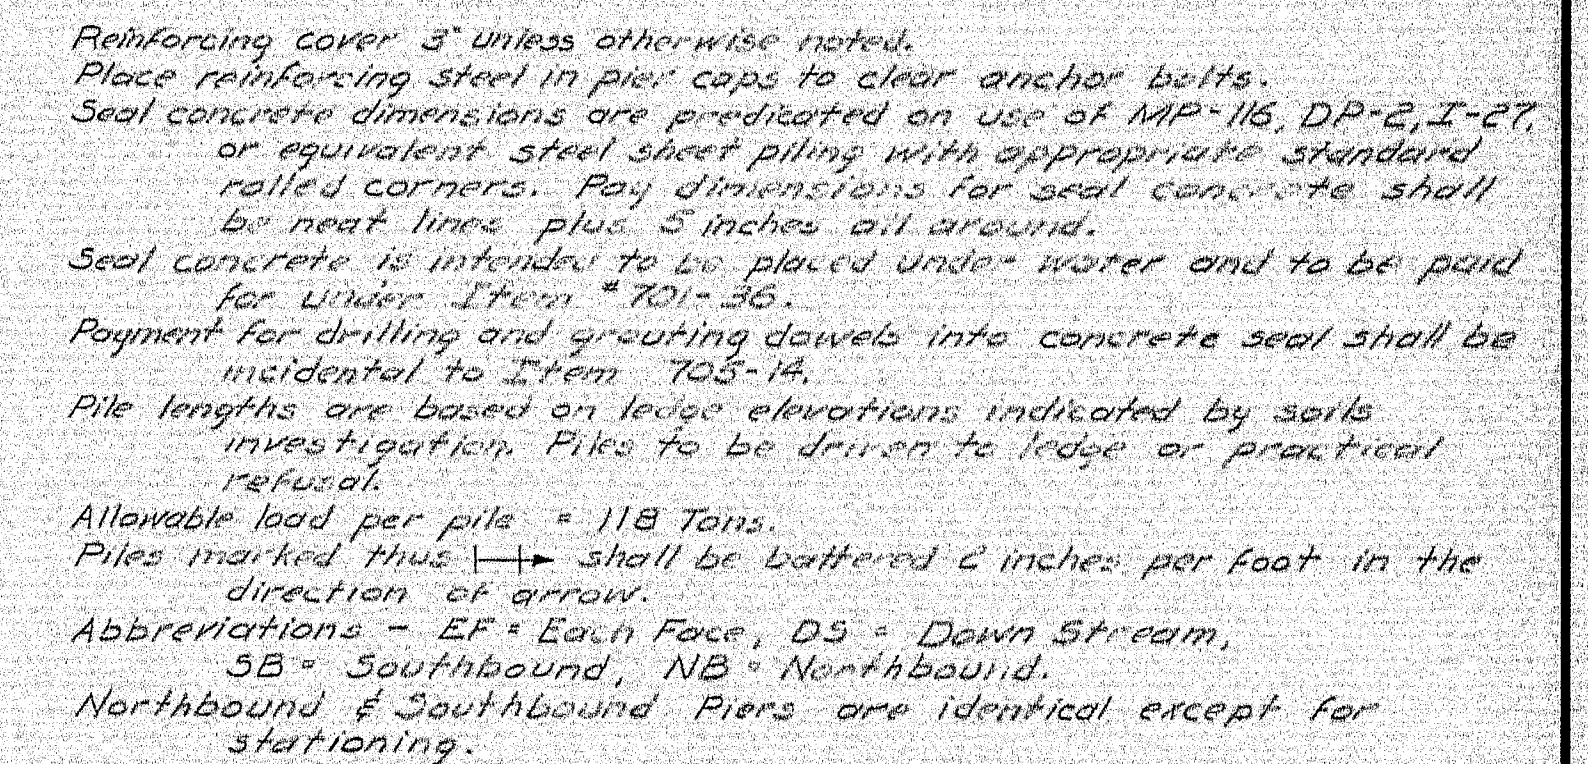 Reinforcing cover 3" unless otherwise noted.
Place reinforcing steel in pier caps to clear anchor bolts.
Seal concrete dimensions are predicated on use of MP-116, DP-2, I-27,
or equivalent steel sheet piling with appropriate standard
rolled corners. Pay dimensions for seal concrete shall
be neat lines plus 5 inches all around.
Seal concrete is intended to be placed under water and to be paid
for under Item #701-36.
Payment for drilling and grouting dowels into concrete seal shall be
incidental to Item 705-14.
Pile lengths are based on ledge elevations indicated by soils
investigation. Piles to be driven to ledge or practical
refusal.
Allowable load per pile = 118 Tons.
Piles marked thus shall be battered 2 inches per foot in the
direction of arrow.
Abbreviations - EF = Each Face, DS = Down Stream,
SB = Southbound, NB = Northbound.
Northbound & Southbound Piers are identical except for
stationing.